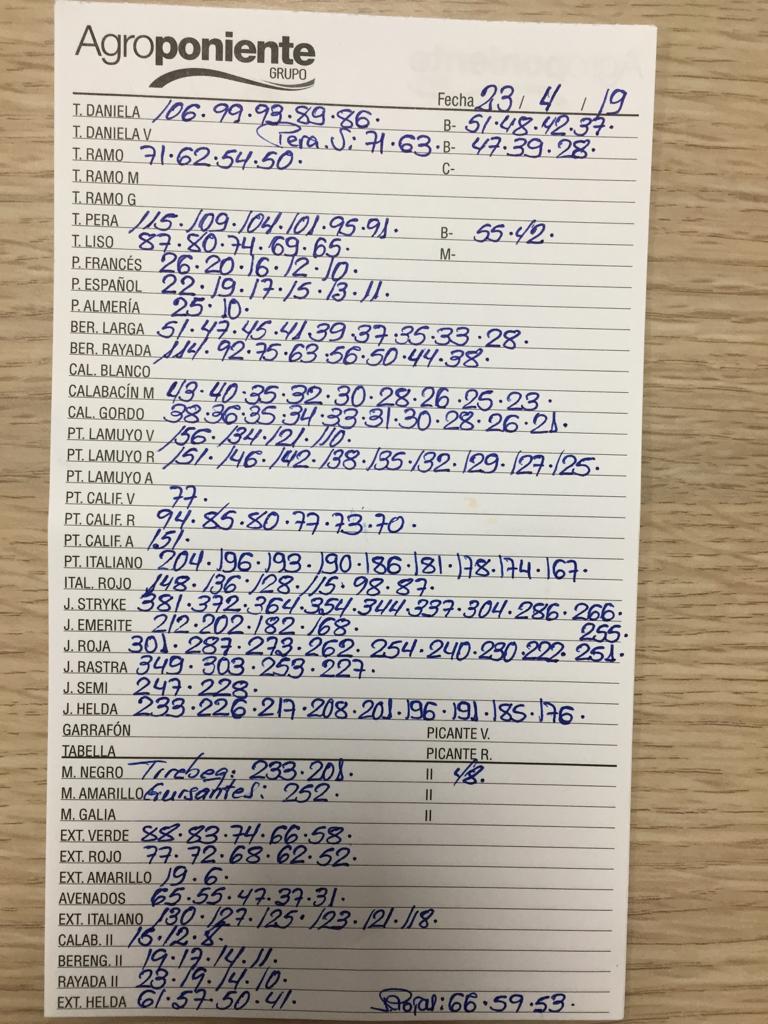 Agroponiente
GRUPO
Fecha 23 / 4 / 19
T. DANELA 106.99.93.89.86. B- 51.48.42.37.
T. DANIELA V Pera.S: 71.63. B- 47.39.28.
T. RAMO 71.62.54.50. C-
T. RAMO M
T. RAMO G
T. PERA 115.109.104.101.95.91. B- 55.42.
T. LISO 87.80.74.69.65. M-
P. FRANCÉS 26.20.16.12.10.
P. ESPAÑOL 22.19.17.15.13.11.
P. ALMERÍA 25.10.
BER. LARGA 51.47.45.41.39.37.35.33.28.
BER. RAYADA 114.92.75.63.56.50.44.38.
CAL. BLANCO
CALABACÍN M 43.40.35.32.30.28.26.25.23.
CAL. GORDO 38.36.35.34.33.31.30.28.26.21.
PT. LAMUYO V 156.134.121.110.
PT. LAMUYO R 151.146.142.138.135.132.129.127.125.
PT. LAMUYO A
PT. CALIF. V 77.
PT. CALIF. R 94.85.80.77.73.70.
PT. CALIF. A 151.
PT. ITALIANO 204.196.193.190.186.181.178.174.167.
ITAL. ROJO 148.136.128.115.98.87.
J. STRYKE 381.372.364.354.344.337.304.286.266.
J. EMERITE 212.202.182.168. 255.
J. ROJA 301.287.273.262.254.240.230.222.251.
J. RASTRA 349.303.253.227.
J. SEMI 247.228.
J. HELDA 233.226.217.208.201.196.191.185.176.
GARRAFÓN PICANTE V.
TABELLA PICANTE R.
M. NEGRO Tirabeq: 233.201. II 48.
M. AMARILLO Guisantes: 252. II
M. GALIA II
EXT. VERDE 88.83.74.66.58.
EXT. ROJO 77.72.68.62.52.
EXT. AMARILLO 19.6.
AVENADOS 65.55.47.37.31.
EXT. ITALIANO 130.127.125.123.121.118.
CALAB. II 15.12.8.
BERENG. II 19.17.14.11.
RAYADA II 23.19.14.10.
EXT. HELDA 61.57.50.41. 66.59.53.